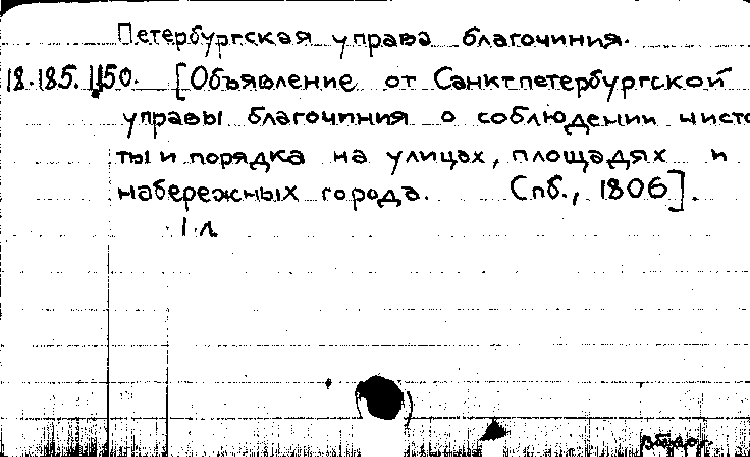 Петербургская управа благочиния.
18.185.1.150. [Объявление от Санктпетербургской
управы благочиния о соблюдении чисто
ты и порядка на улицах, площадях и
набережных города. Спб., 1806].
1 л.